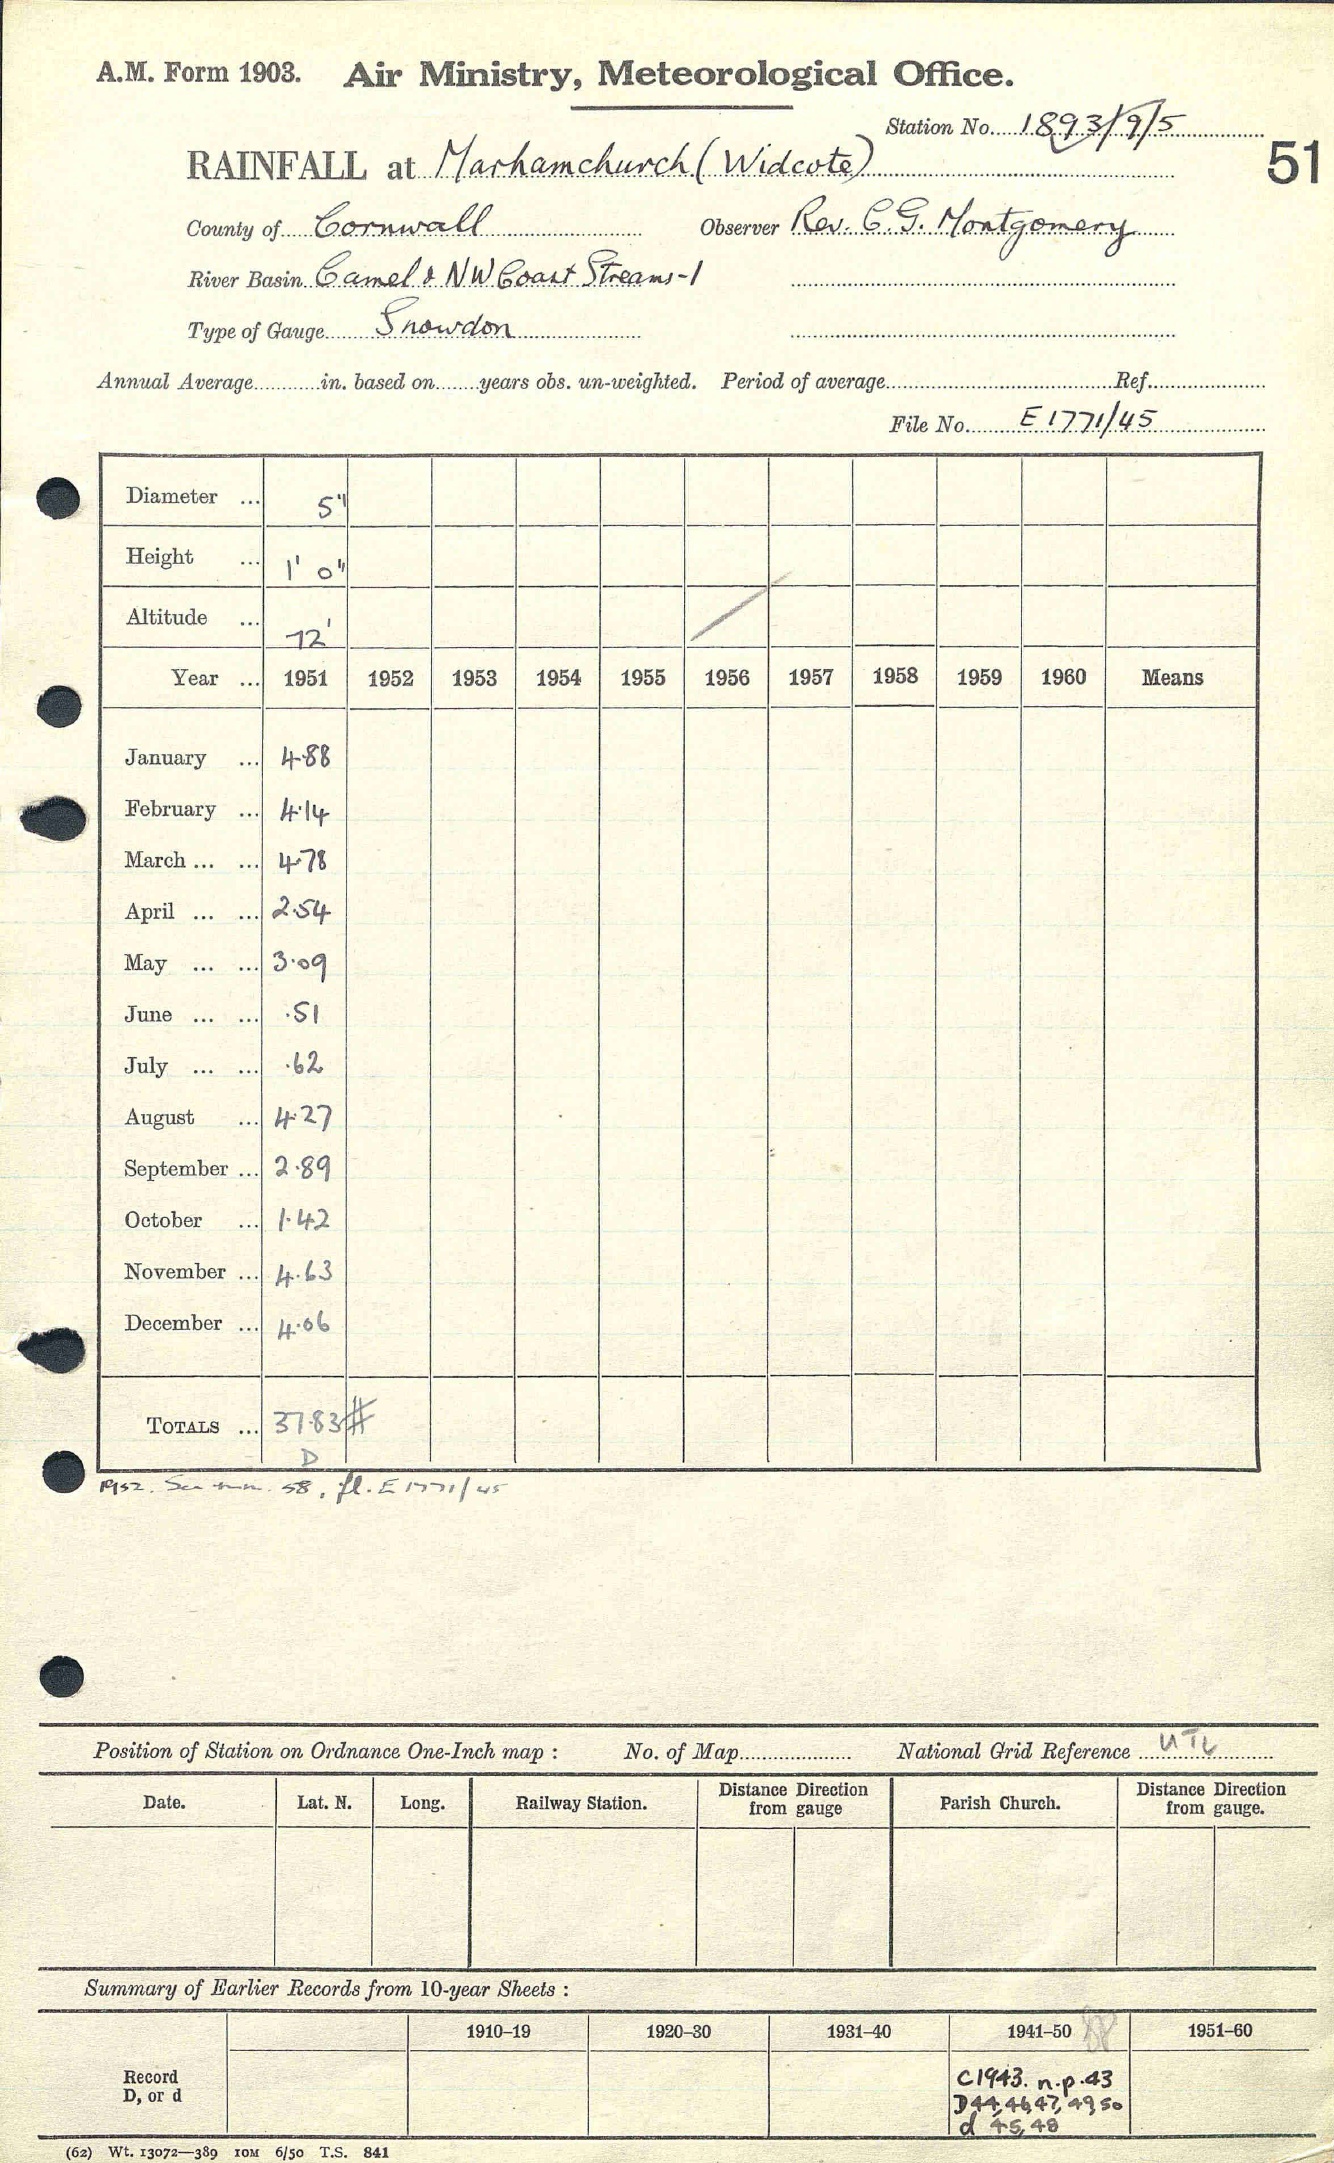 A.M. Form 1903. Air Ministry, Meteorological Office.
Station No. 1893/9/5
51
RAINFALL at Marhamchurch (Widcote)
County of Cornwall Observer Rev. C. G. Montgomery
River Basin Camel & NW Coast Streams-1
Type of Gauge Snowdon
Annual Average in. based on years obs. un-weighted. Period of average Ref.
File No. E 1771/45
Diameter ... 5"
Height ... 1' 0"
Altitude ... 72'
Year ... 1951 1952 1953 1954 1955 1956 1957 1958 1959 1960 Means
January ... 4.88
February ... 4.14
March ... ... 4.78
April ... ... 2.54
May ... ... 3.09
June ... ... .51
July ... ... .62
August ... 4.27
September ... 2.89
October ... 1.42
November ... 4.63
December ... 4.06
TOTALS ... 37.83 #
D
1952. See 58, fl. E 1771/45
Position of Station on Ordnance One-Inch map : No. of Map National Grid Reference
Date. Lat. N. Long. Railway Station. Distance Direction from gauge Parish Church. Distance Direction from gauge.
Summary of Earlier Records from 10-year Sheets :
1910–19 1920–30 1931–40 1941–50 1951–60
Record D, or d
C1943. n.p. 43
D44,46,47,49,50
d 45,48
(62) Wt. 13072—389 10M 6/50 T.S. 841